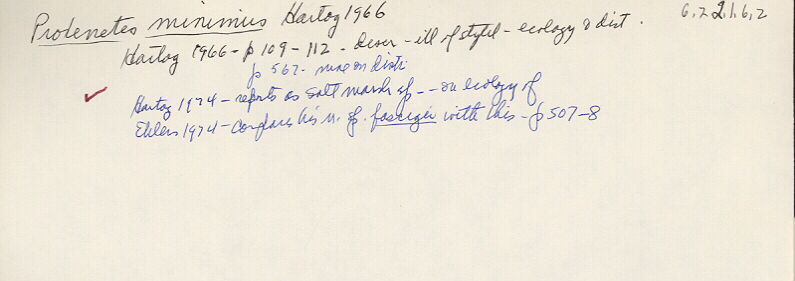 Proxenetes minimus Hartog 1966 6.7.2.1.6.2
Hartog 1966 - p 109 - 112 - Descr - ill of stylet - ecology & dist.
p 562 - more on distr
✓ Hartog 1974 - reports as salt marsh sp - - on ecology of
Ehlers 1974 - compares his n. sp. fasciger with this - p 507-8